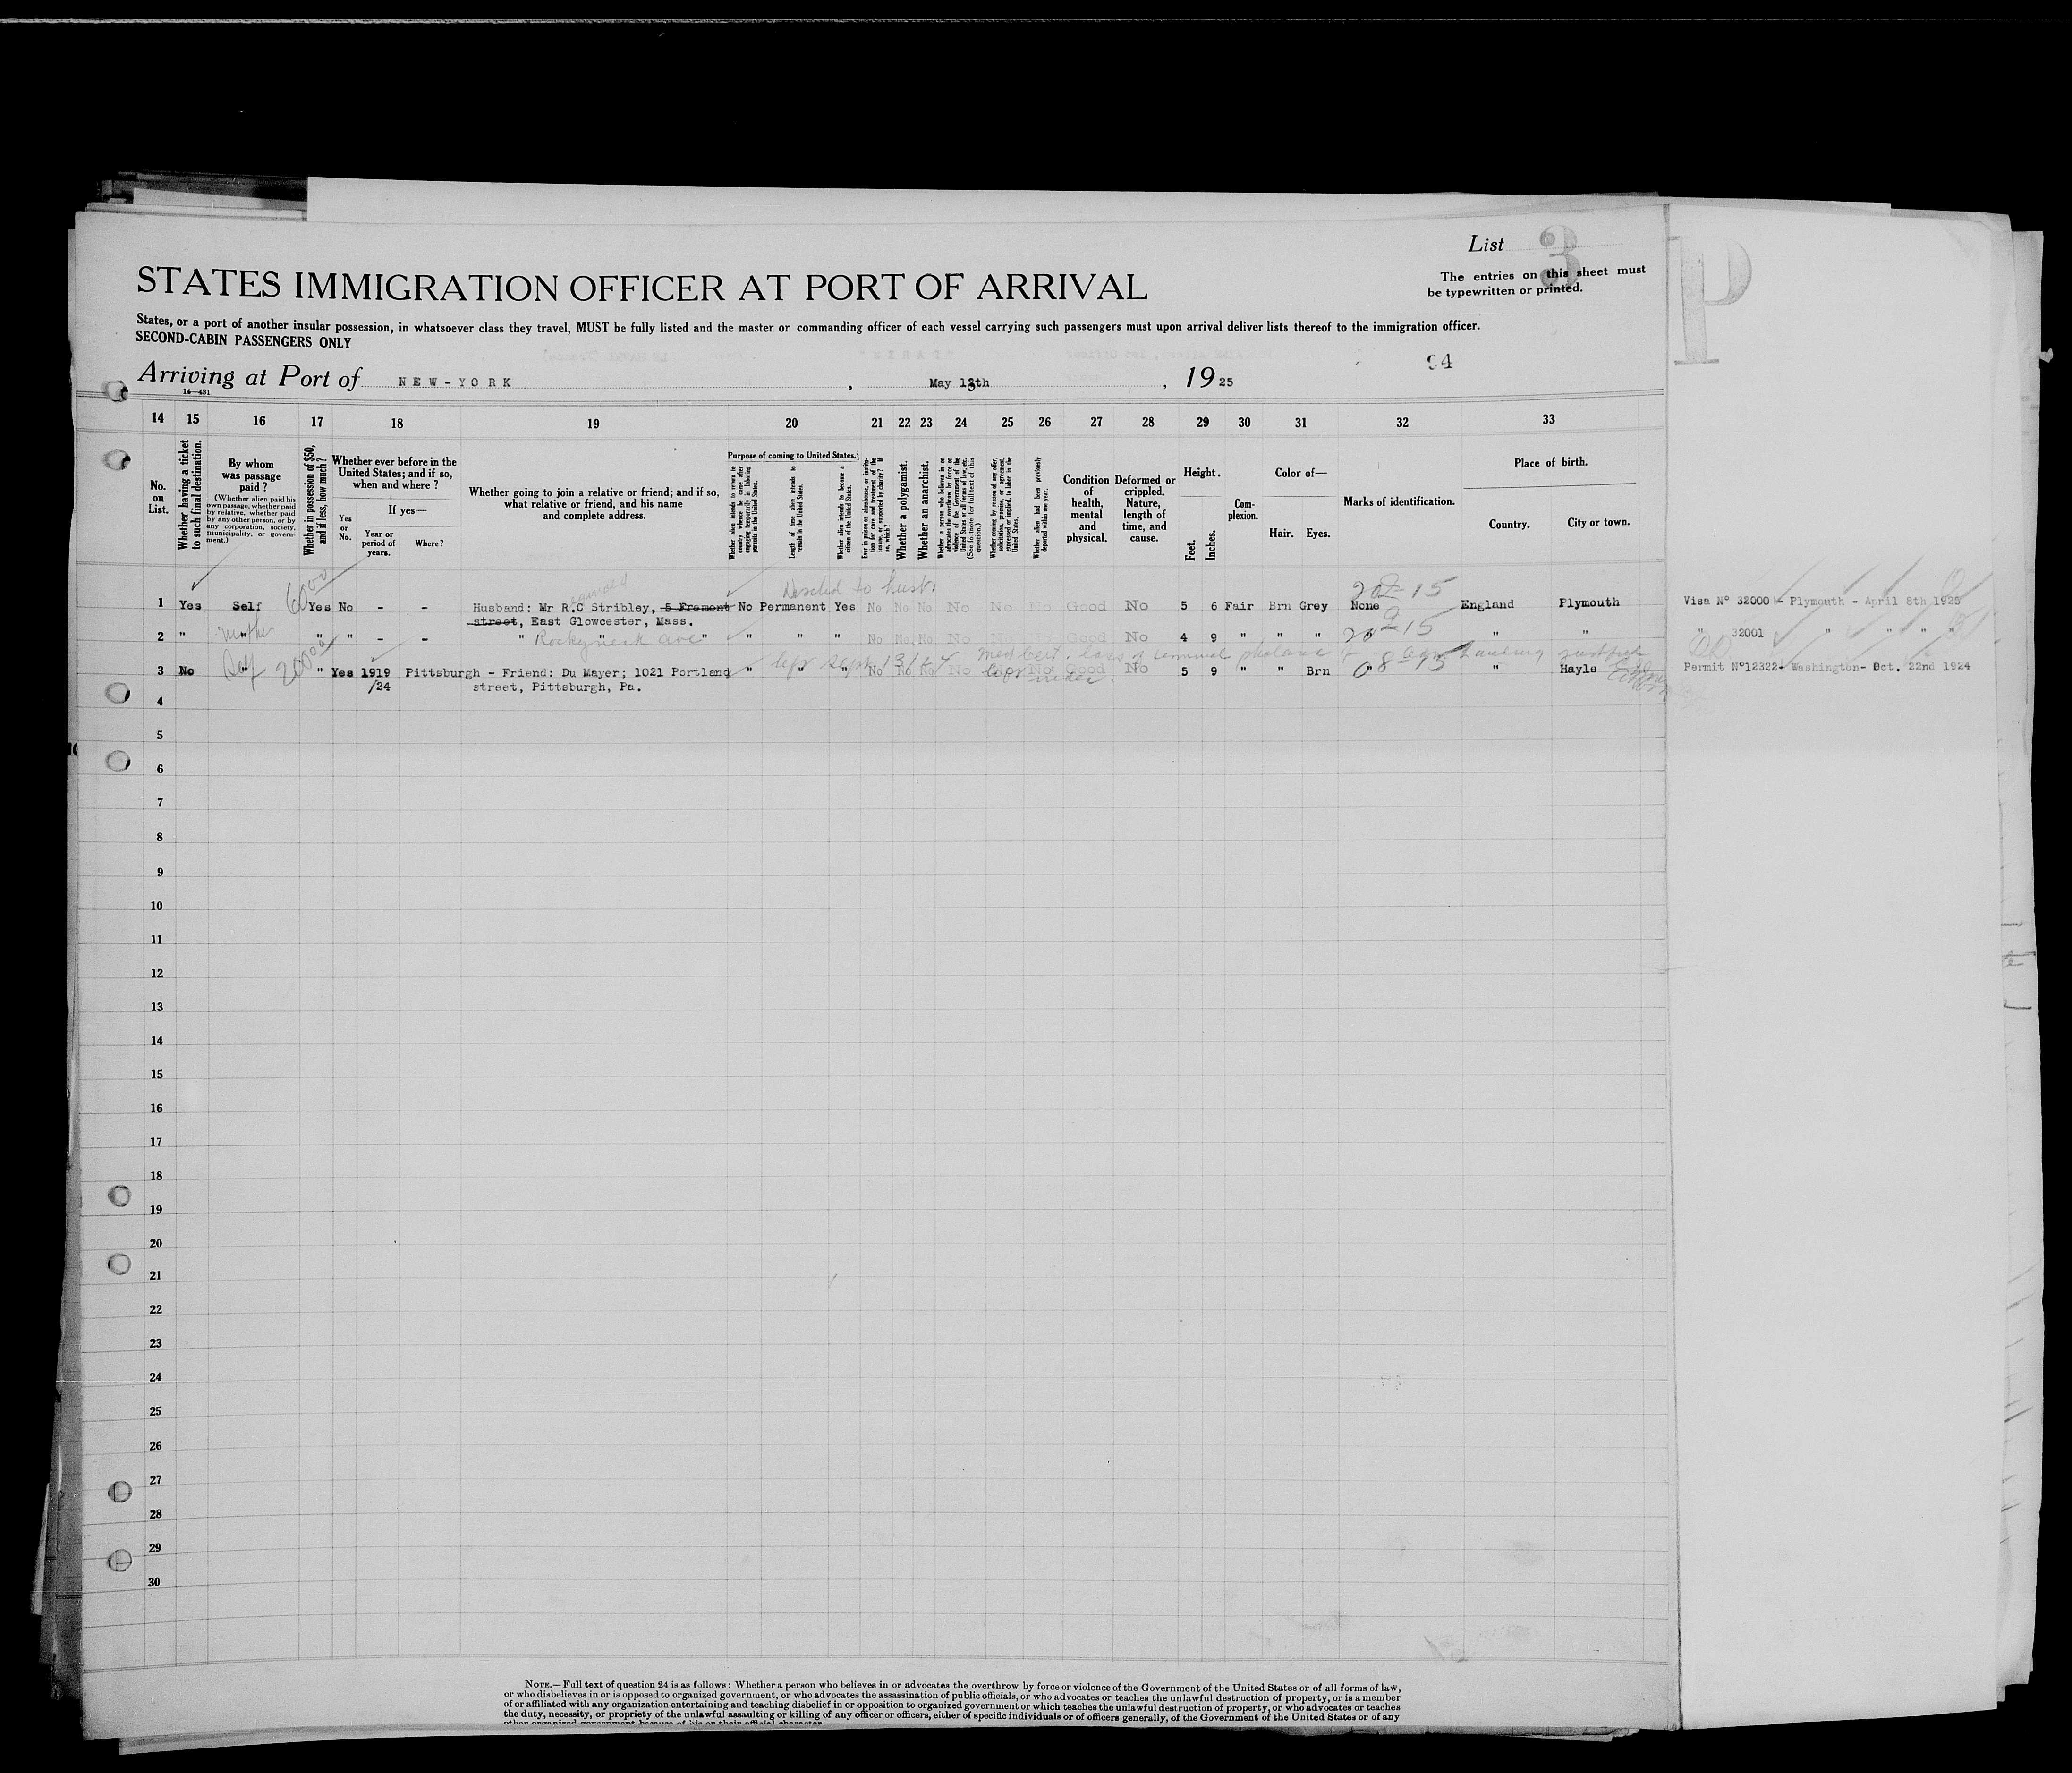 List 3
P
STATES IMMIGRATION OFFICER AT PORT OF ARRIVAL
The entries on this sheet must
be typewritten or printed.
States, or a port of another insular possession, in whatsoever class they travel, MUST be fully listed and the master or commanding officer of each vessel carrying such passengers must upon arrival deliver lists thereof to the immigration officer.
SECOND-CABIN PASSENGERS ONLY
94
Arriving at Port of NEW-YORK, May 13th, 1925
14—431
14 15 16 17 18 19 20 21 22 23 24 25 26 27 28 29 30 31 32 33
No. on List.
Whether having a ticket to such final destination.
By whom was passage paid?
(Whether alien paid his own passage, whether paid by relative, whether paid by any other person, or by any corporation, society, municipality, or government.)
Whether in possession of $50, and if less, how much?
Whether ever before in the United States; and if so, when and where?
Yes or No.
If yes—
Year or period of years.
Where?
Whether going to join a relative or friend; and if so, what relative or friend, and his name and complete address.
Purpose of coming to United States.
Whether alien intends to return to country whence he came after engaging temporarily in laboring pursuits in the United States.
Length of time alien intends to remain in the United States.
Whether alien intends to become a citizen of the United States.
Ever in prison or almshouse, or institution for care and treatment of the insane, or supported by charity? If so, which?
Whether a polygamist.
Whether an anarchist.
Whether a person who believes in or advocates the overthrow by force or violence of the Government of the United States or all forms of law, etc. (See footnote for full text of this question.)
Whether coming by reason of any offer, solicitation, promise, or agreement, expressed or implied, to labor in the United States.
Whether alien had been previously deported within one year.
Condition of health, mental and physical.
Deformed or crippled. Nature, length of time, and cause.
Height.
Feet.
Inches.
Complexion.
Color of—
Hair. Eyes.
Marks of identification.
Place of birth.
Country.
City or town.
1 Yes Self 60 00 Yes No - - Husband: Mr R.C Stribley, 5 Fremont No Permanent Yes No No No No No No Good No 5 6 Fair Brn Grey None England Plymouth Visa Nº 32000 - Plymouth - April 8th 1925
street, East Glowcester, Mass.
2 " Mother " " - - " Rocky neck ave " " " " No No No No No No Good No 4 9 " " " " " " " 32001 " " " "
3 No Self 200 00 " Yes 1919 Pittsburgh - Friend: Du Mayer; 1021 Portland " " " No No No No No Good No 5 9 " " Brn " " Hayle Permit Nº12322- Washington- Oct. 22nd 1924
/24 street, Pittsburgh, Pa.
4
5
6
7
8
9
10
11
12
13
14
15
16
17
18
19
20
21
22
23
24
25
26
27
28
29
30
NOTE.—Full text of question 24 is as follows: Whether a person who believes in or advocates the overthrow by force or violence of the Government of the United States or of all forms of law,
or who disbelieves in or is opposed to organized government, or who advocates the assassination of public officials, or who advocates or teaches the unlawful destruction of property, or is a member
of or affiliated with any organization entertaining and teaching disbelief in or opposition to organized government or which teaches the unlawful destruction of property, or who advocates or teaches
the duty, necessity, or propriety of the unlawful assaulting or killing of any officer or officers, either of specific individuals or of officers generally, of the Government of the United States or of any
other organized government because of his or their official character.